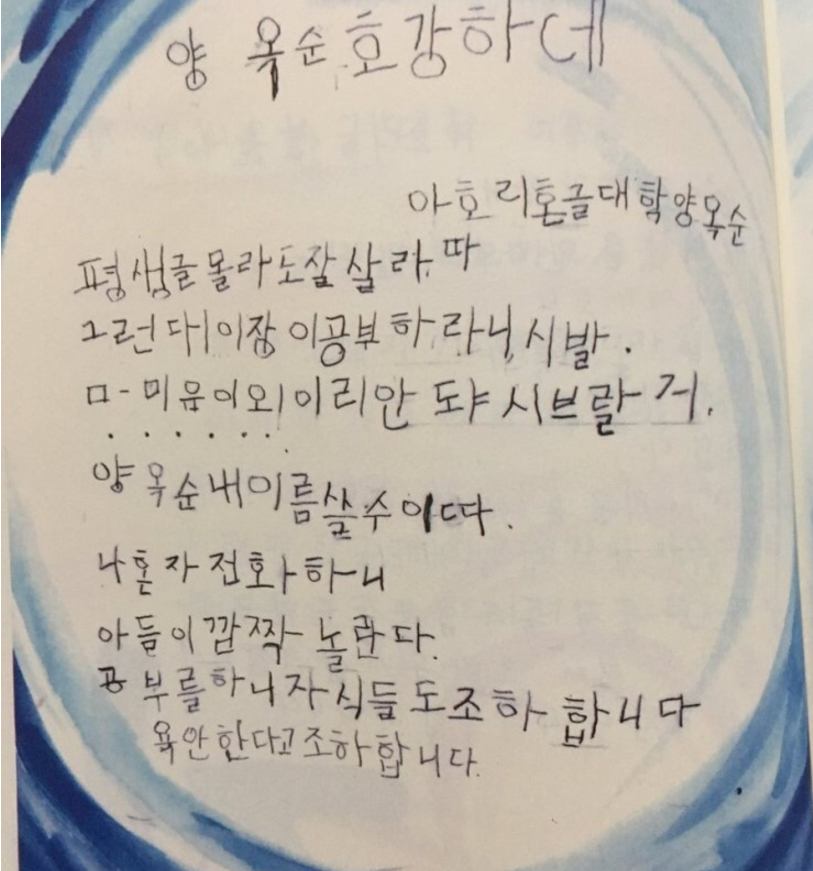 양 옥순 호강하데
아호리 혼글대학 양옥순
평생글몰라도잘살라따
그런대이장이공부하라니, 시발.
ㅁ-미윰이외이리안 도야 시브랄거.
· · · · · · ·
양옥순내이름쓸수이따.
나혼자전화하니
아들이깜짝 놀란다.
공부를하니자식들도조하합니다
욕안한다고조하합니다.